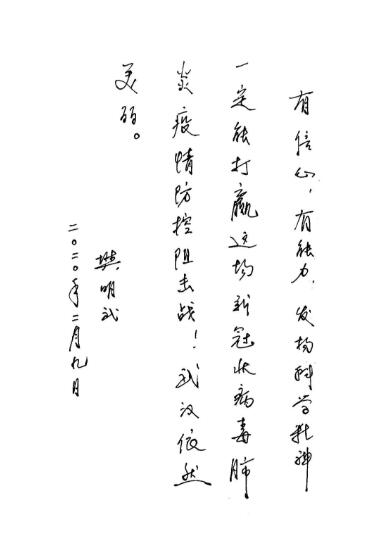 有信心,有能力,发扬科学精神
一定能打赢这场新冠状病毒肺
炎疫情防控阻击战!武汉依然
美丽。
樊明武
二〇二〇年二月九日